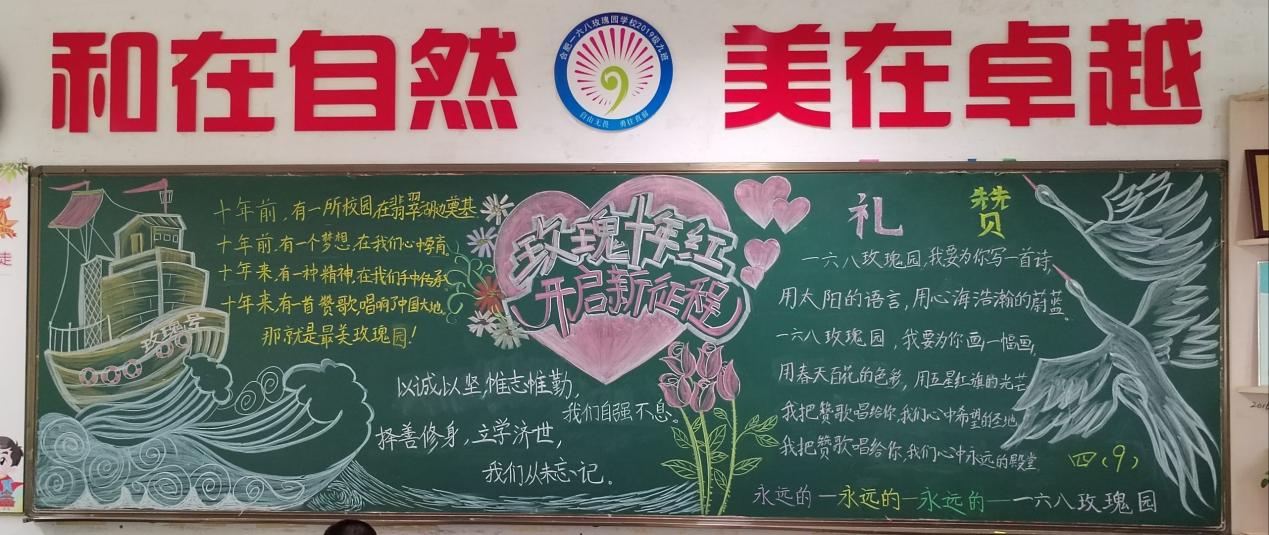 和在自然
合肥一六八玫瑰园学校2019级九班
自由无畏 勇往直前
美在卓越
十年前,有一所校园在翡翠湖边奠基。
十年前,有一个梦想,在我们心中孕育。
十年来,有一种精神,在我们手中传承
十年来,有一首赞歌唱响了中国大地。
那就是最美玫瑰园!
玫瑰号
以诚以坚,惟志惟勤,
我们自强不息。
择善修身,立学济世,
我们从未忘记。
玫瑰十年红
开启新征程
礼赞
一六八玫瑰园,我要为你写一首诗,
用太阳的语言,用心海浩瀚的蔚蓝。
一六八玫瑰园,我要为你画一幅画,
用春天百花的色彩,用五星红旗的光芒
我把赞歌唱给你,我们心中希望的圣地
我把赞歌唱给你,我们心中永远的殿堂
四(9)
永远的—永远的—永远的—一六八玫瑰园